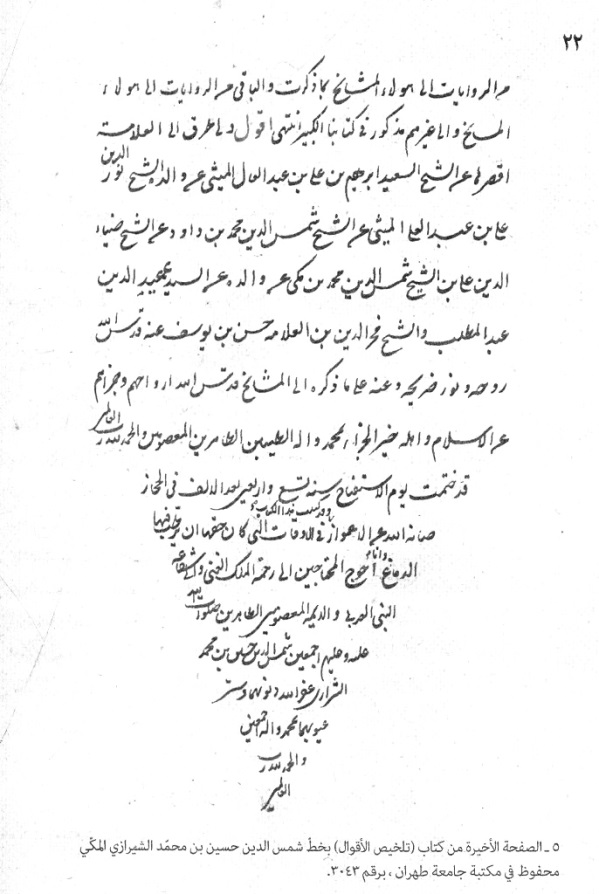 ٢٢
من الروايات الى هولاء المشايخ بما ذكرت والباقى من الروايات الى هولاء
المشايخ والى غيرهم مذكور فى كتابنا الكبير انتهى اقول ولى طرق الى العلامة
اقصرها عن الشيخ السعيد ابرهيم بن على بن عبد العال الميسى عن والده الشيخ نور الدين
على بن عبد العالى الميسى عن الشيخ شمس الدين محمد بن داود عن الشيخ ضياء
الدين على بن الشيخ شمس الدين محمد بن مكى عن والده عن السيد عميد الدين
عبد المطلب والشيخ فخر الدين بن العلامه حسن بن يوسف عنه قدس الله
روحه ونور ضريحه وعنه على ما ذكره الى المشايخ قدس الله ارواحهم وجزاهم
عن الاسلام واهله خير الجزاء بمحمد واله الطيبين الطاهرين المعصومين والحمد لله رب العالمين
قد ختمت يوم الاستفتاح سنه تسع واربعين بعد الالف فى الحجاز
صانه الله عن الاعواز فى الاوقات التى كان حقها ان
الدماغ وانا احوج المحتاجين الى رحمة الملك الغنى وشفاعة
النبى العربى والايمه المعصومين الطاهرين صلوات الله
عليه وعليهم اجمعين شمس الدين حسين بن محمد
الشيرازى عفى الله ذنوبهما وستر
عيوبهما بمحمد واله اجمعين
والحمد لله رب
العالمين
٥ ـ الصفحة الأخيرة من كتاب (تلخيص الأقوال) بخطّ شمس الدين حسين بن محمّد الشيرازي المكّي
محفوظ في مكتبة جامعة طهران ، برقم ٣٠٤٣.